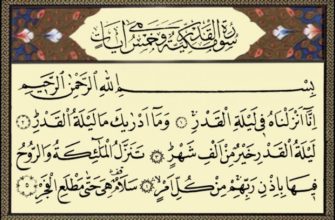 سورة القدر مكية وهي خمس آيات
بِسْمِ اللّٰهِ الرَّحْمٰنِ الرَّحِيمِ
اِنَّٓا اَنْزَلْنَاهُ فِي لَيْلَةِ الْقَدْرِ ﴿١﴾ وَمَٓا اَدْرٰيكَ مَا لَيْلَةُ الْقَدْرِ ﴿٢﴾
لَيْلَةُ الْقَدْرِ خَيْرٌ مِنْ اَلْفِ شَهْرٍ ﴿٣﴾ تَنَزَّلُ الْمَلٰٓئِكَةُ وَالرُّوحُ
فِيهَا بِاِذْنِ رَبِّهِمْ مِنْ كُلِّ اَمْرٍ ﴿٤﴾ سَلَامٌ هِيَ حَتّٰى مَطْلَعِ الْفَجْرِ ﴿٥﴾